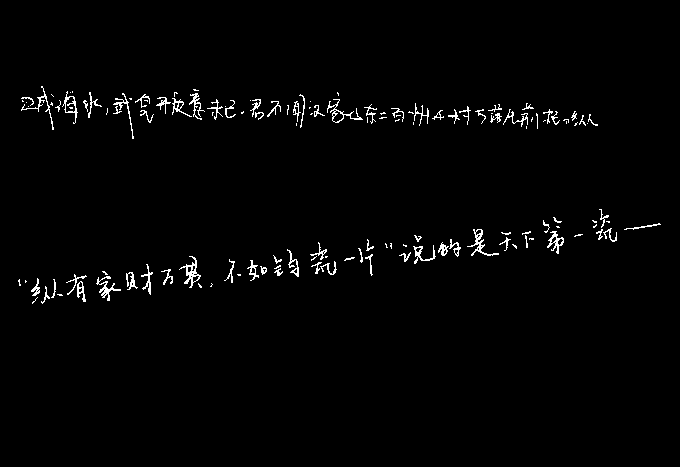 成海水，武皇开边意未已。君不闻汉家山东二百州，千村万落
"纵有家财万贯，不如钧瓷一片"说的是天下第一瓷——